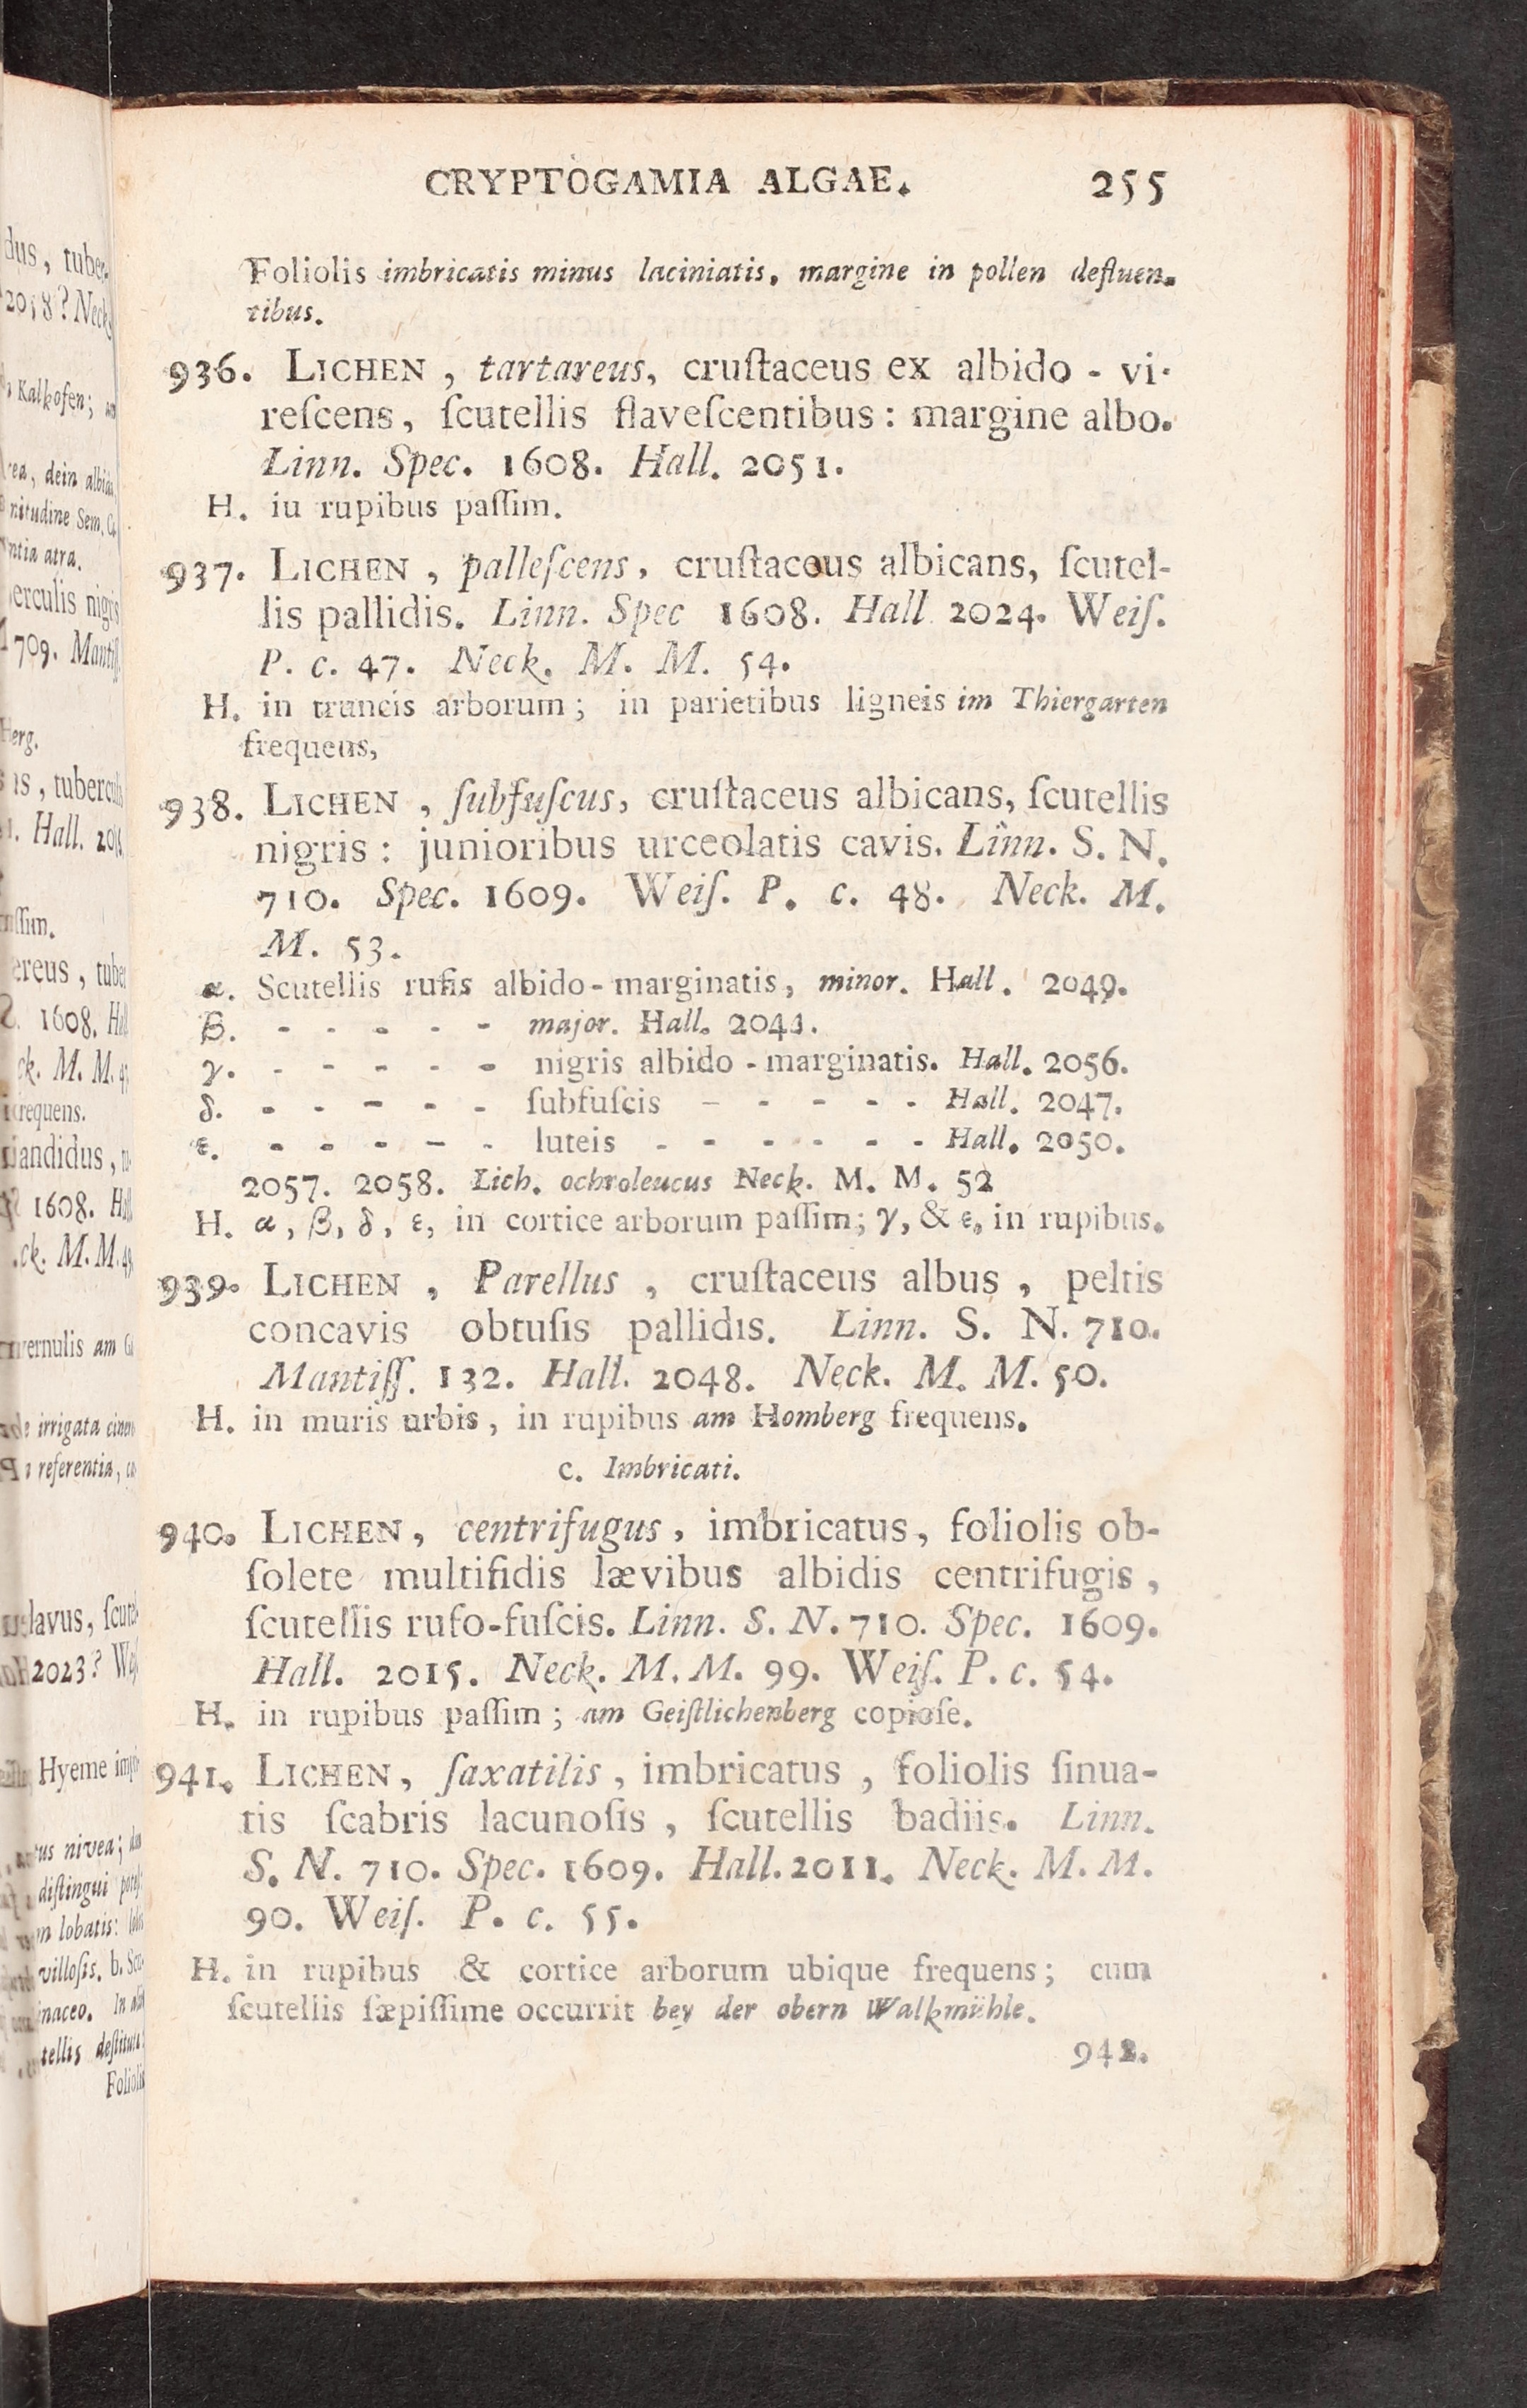 CRYPTOGAMIA ALGAE. 255
Foliolis imbricatis minus laciniatis, margine in pollen defluen-
tibus.
936. LICHEN, tartareus, cruſtaceus ex albido - vi-
reſcens, ſcutellis flaveſcentibus: margine albo.
Linn. Spec. 1608. Hall. 2051.
H. iu rupibus paſſim.
937. LICHEN, palleſcens, cruſtaceus albicans, ſcutel-
lis pallidis. Linn. Spec 1608. Hall 2024. Weiſ.
P. c. 47. Neck. M. M. 54.
H. in truncis arborum; in parietibus ligneis im Thiergarten
frequens,
938. LICHEN, ſubfuſcus, cruſtaceus albicans, ſcutellis
nigris: junioribus urceolatis cavis. Linn. S. N.
710. Spec. 1609. Weiſ. P. c. 48. Neck. M.
M. 53.
α. Scutellis rufis albido-marginatis, minor. Hall. 2049.
β. - - - - - - major. Hall. 2041.
γ. - - - - - - nigris albido - marginatis. Hall. 2056.
δ. - - - - - - ſubfuſcis - - - - - Hall. 2047.
ε. - - - - - - luteis - - - - - - Hall. 2050.
2057. 2058. Lich. ochroleucus Neck. M. M. 52
H. α, β, δ, ε, in cortice arborum paſſim; γ, & ε, in rupibus.
939. LICHEN, Parellus, cruſtaceus albus, peltis
concavis obtuſis pallidis. Linn. S. N. 710.
Mantiſſ. 132. Hall. 2048. Neck. M. M. 50.
H. in muris urbis, in rupibus am Homberg frequens.
c. Imbricati.
940. LICHEN, centrifugus, imbricatus, foliolis ob-
ſolete multifidis lævibus albidis centrifugis,
ſcutellis rufo-fuſcis. Linn. S. N. 710. Spec. 1609.
Hall. 2015. Neck. M. M. 99. Weiſ. P. c. 54.
H. in rupibus paſſim; am Geiſtlichenberg copioſe.
941. LICHEN, ſaxatilis, imbricatus, foliolis ſinua-
tis ſcabris lacunoſis, ſcutellis badiis. Linn.
S. N. 710. Spec. 1609. Hall. 2011. Neck. M. M.
90. Weiſ. P. c. 55.
H. in rupibus & cortice arborum ubique frequens; cum
ſcutellis ſæpiſſime occurrit bey der obern Walkmühle.
942.